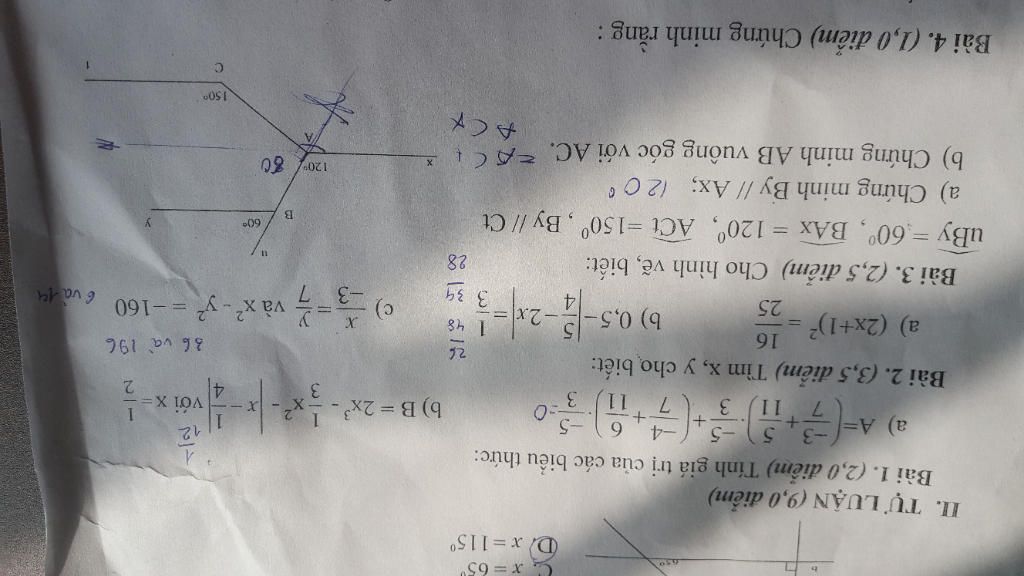 C. x = 65⁰
D. x = 115⁰
b
65⁰
II. TỰ LUẬN (9,0 điểm)
Bài 1. (2,0 điểm) Tính giá trị của các biểu thức:
a) A=(-3/7 + 5/11)·-5/3 + (-4/7 + 6/11)·-5/3 =0
b) B = 2x³ - 1/3 x² - |x - 1/4| với x = 1/2
1/12
Bài 2. (3,5 điểm) Tìm x, y cho biết:
36 và 196
a) (2x+1)² = 16/25
b) 0,5 - |5/4 - 2x| = 1/3
c) x/-3 = y/7 và x² - y² = -160
6 và 14
26/48
34/28
Bài 3. (2,5 điểm) Cho hình vẽ, biết:
uBy = 60⁰, BAx = 120⁰, ACt = 150⁰, By // Ct
a) Chứng minh By // Ax; 120⁰
b) Chứng minh AB vuông góc với AC.
u
B
60⁰
y
x
120⁰
A
150⁰
C
t
Bài 4. (1,0 điểm) Chứng minh rằng :